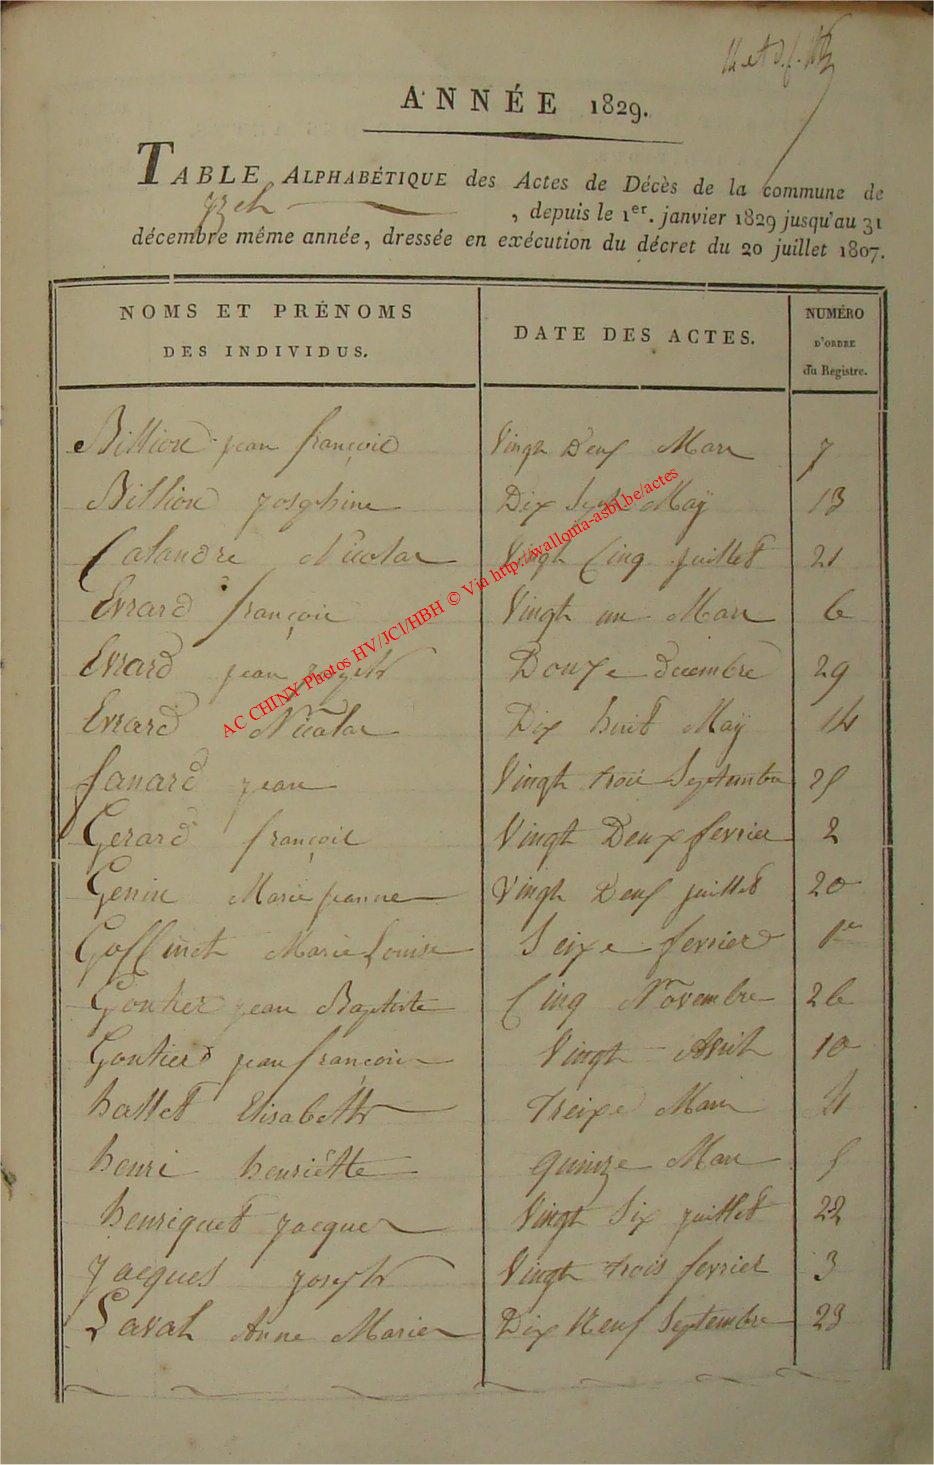 ANNÉE 1829.
TABLE ALPHABÉTIQUE des Actes de Décès de la commune de
Izel , depuis le 1er. janvier 1829 jusqu'au 31
décembre même année, dressée en exécution du décret du 20 juillet 1807.
NOMS ET PRÉNOMS DES INDIVIDUS. DATE DES ACTES. NUMÉRO D'ORDRE du Registre.
Billion jean françois Vingt Deux Mars 7
Billion josephine Dix Sept Maÿ 13
Calandre Nicolas Vingt Cinq juillet 21
Evrard françois Vingt un Mars 6
Evrard jean joseph Douze decembre 29
Evrard Nicolas Dix huit Maÿ 14
fanard jean Vingt trois Septembre 25
Gerard françois Vingt Deux fevrier 2
Genin Marie jeanne Vingt Deux juillet 20
Goffinet Marie Louise Seize fevrier 1er
Gontier jean Baptiste Cinq Novembre 26
Gontier jean françois Vingt Avril 10
hallet Elisabeth Treize Mars 4
henri henriétte quinze Mars 5
henriquet jacques Vingt Six juillet 22
jacques joseph Vingt trois fevrier 3
Laval Anne Marie Dix Neuf Septembre 23
AC CHINY Photos HV/JCl/HBH © Via http://wallonia-asbl.be/actes